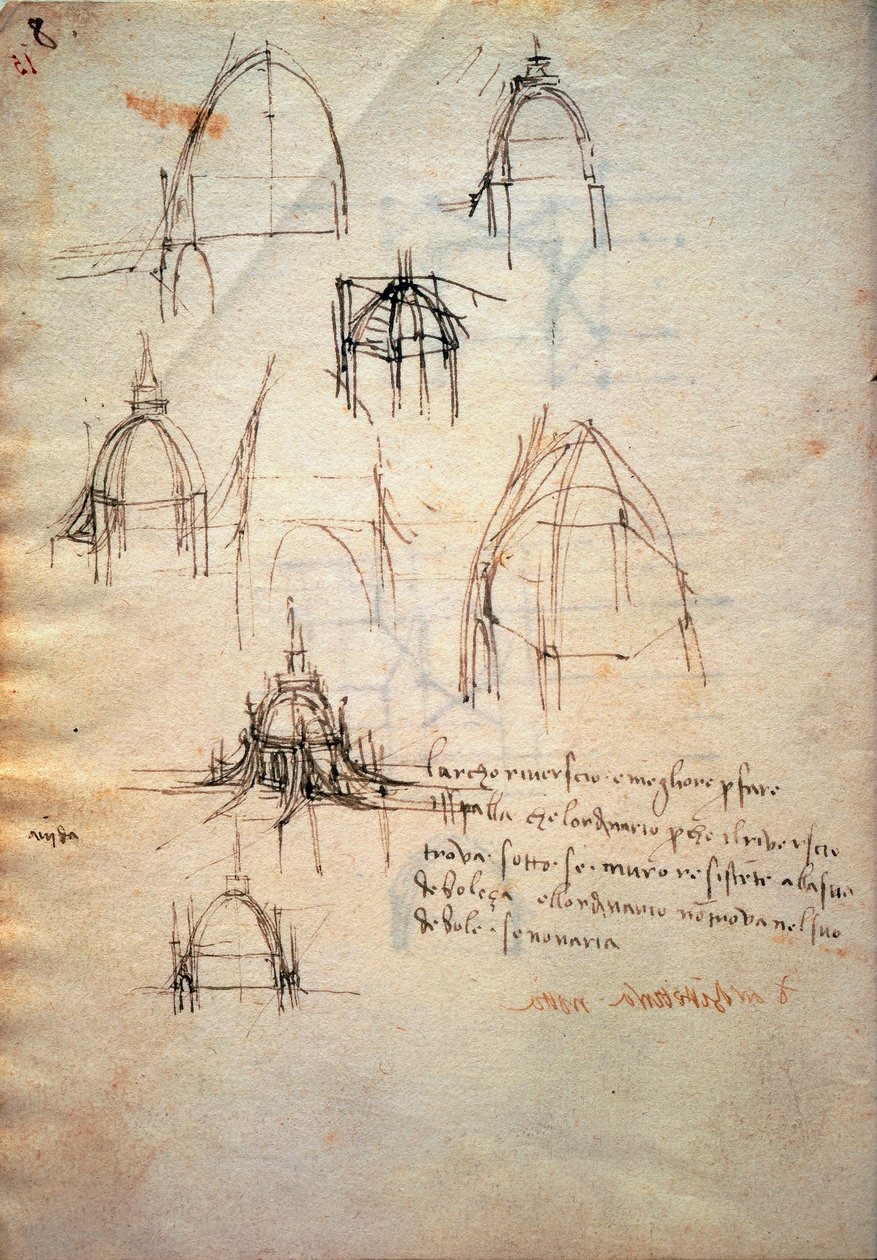 8
15
larcho riverscio · e megliore p fare
isspalla che lordinario pche il riverscio
trova · sotto · se · muro resistēte alla sua
deboleza ellordinario nō trova nel suo
debole · se nonaria